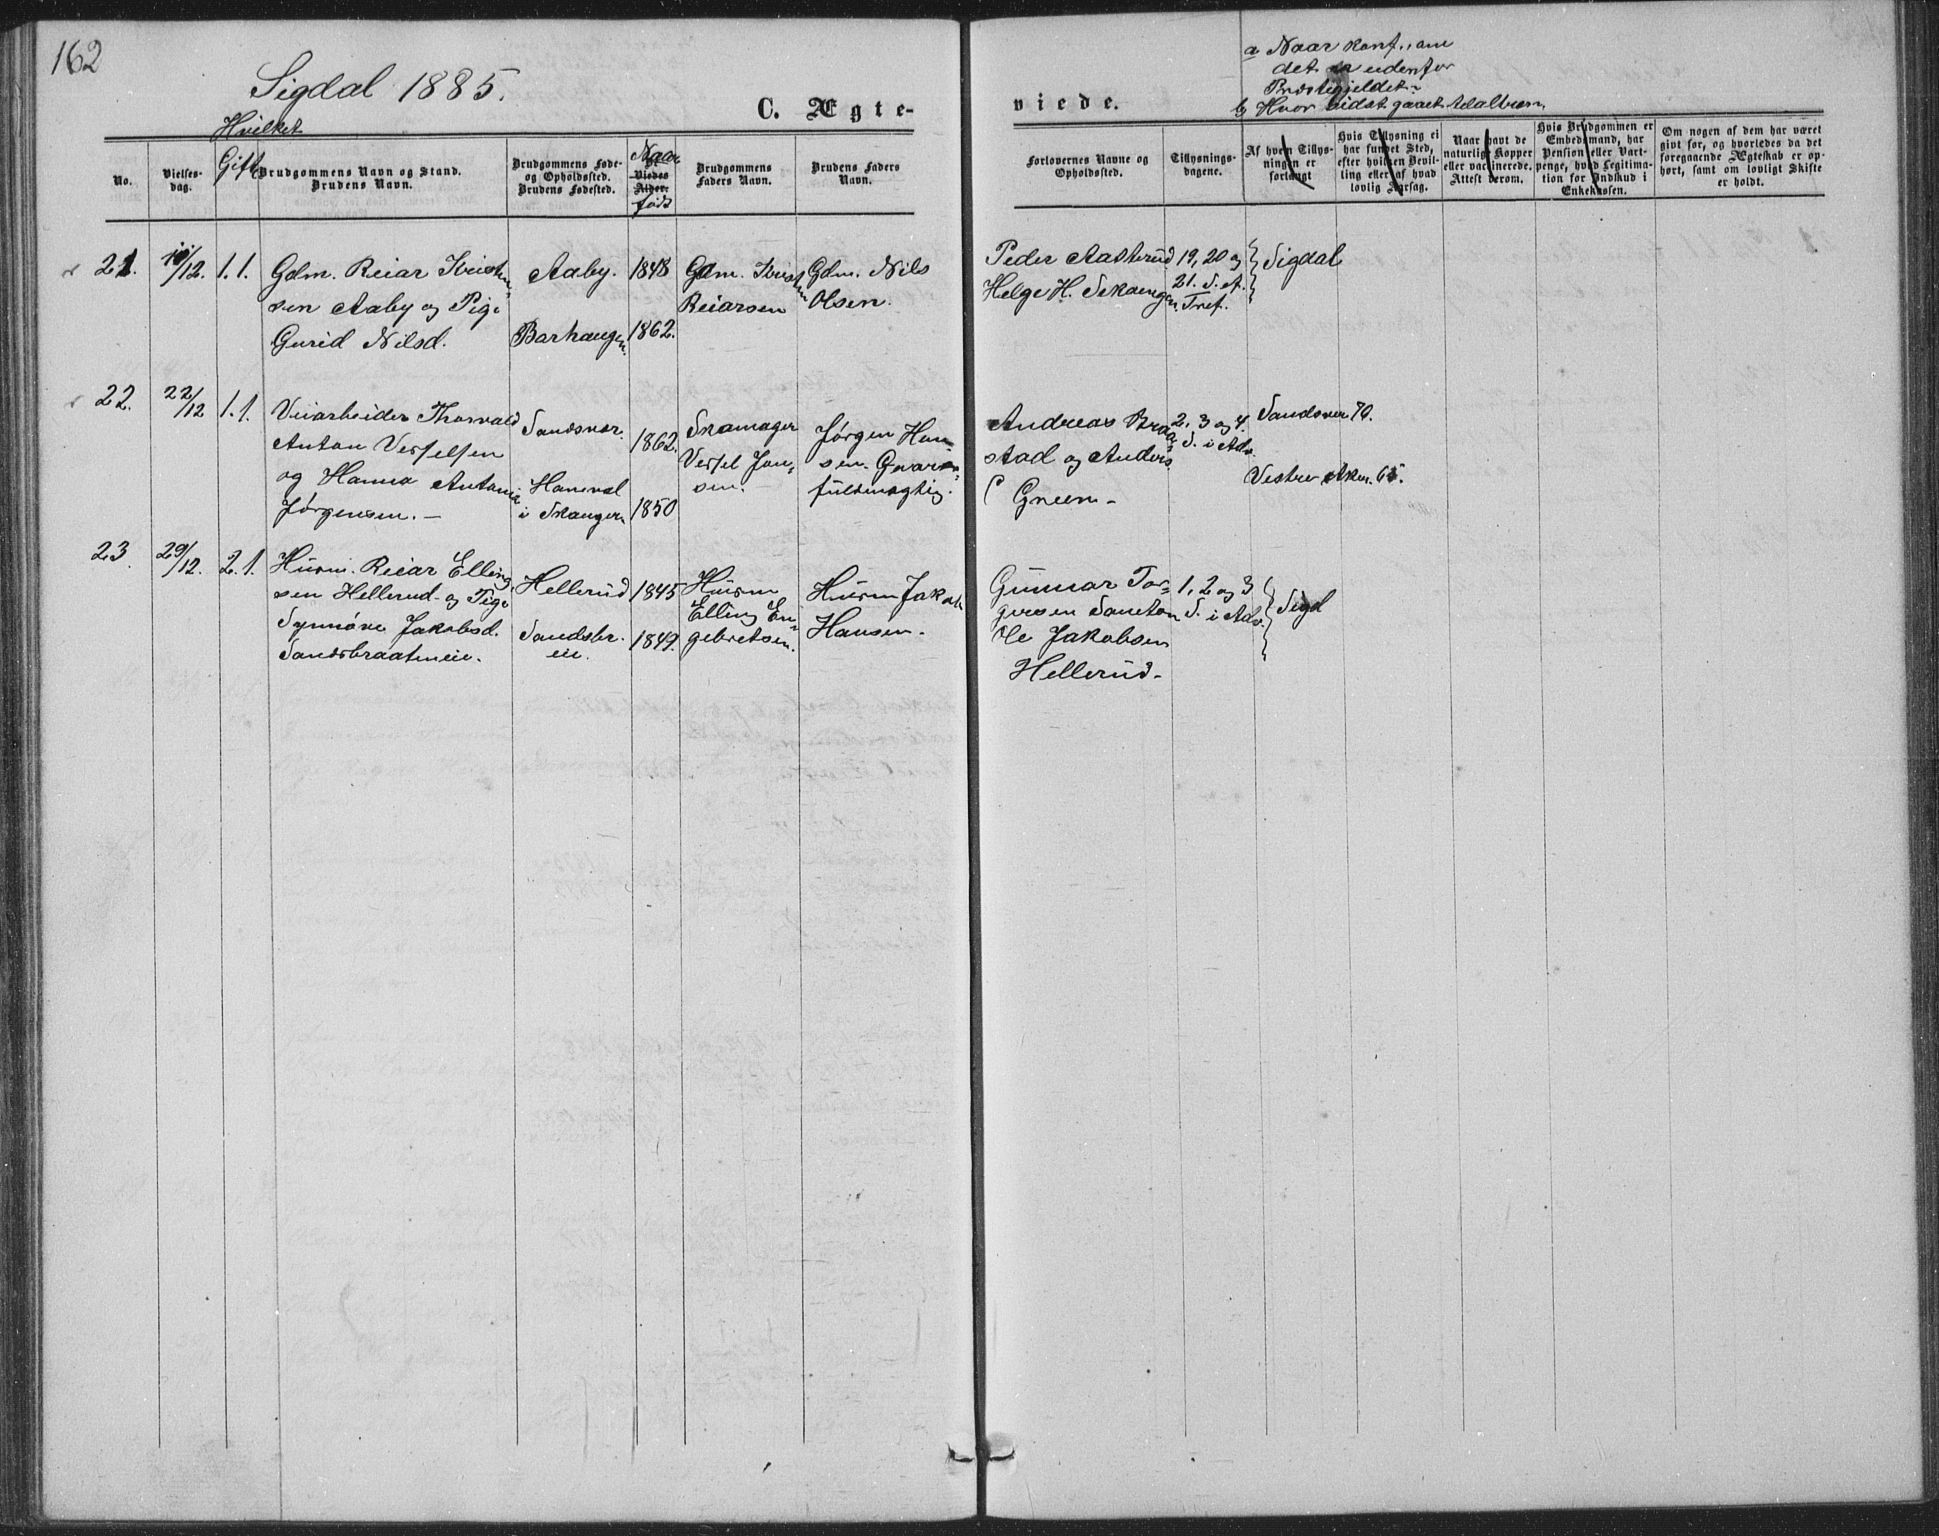 162
Sigdal 1885.
C. Ægte-
viede.
a Naar konf., om
det er udenfor
Præstegjeldet
b Hvor sidst gaaet til alters
Hvilket
Gifte
No.
Vielses-
dag.
Brudgommens Navn og Stand.
Brudens Navn.
Brudgommens Føde-
og Opholdssted.
Brudens Fødested.
Naar
Viedes
Alder.
født
Brudgommens
Faders Navn.
Brudens Faders
Navn.
Forlovernes Navne og
Opholdssted.
Tillysnings-
dagene.
Af hvem Tillys-
ningen er
forlangt
Hvis Tillysning ei
har fundet Sted,
efter hvilken Bevil-
ling eller af hvad
lovlig Aarsag.
Naar havt de
naturlige Kopper
eller vaccinerede.
Attest derom.
Hvis Brudgommen er
Embedsmand, har
Pension eller Vart-
penge, hvad Legitima-
tion for Indskud i
Enkekassen.
Om nogen af dem har været
givt for, og hvorledes da det
foregaaende Ægteskab er op-
hørt, samt om lovligt Skifte
er holdt.
21. /12. 1.1.
Gdm. Reiar Kristen-
sen Aaby og Pige
Gurid Nilsd.
Aaby.
Barhaugen.
1848
1862.
Gdm. Kristen
Reiarsen
Gdm. Nils
Olsen.
Peder Aasterud
Helge H. Skaugen.
19, 20 og
21. S. e.
Tref.
Sigdal
22. 22/12 1.1.
Veiarbeider Thorvald
Anton Vesselsen
og Hanna Antonia
Jørgensen. —
Sandsvær.
i Skanger.
1862.
1850
Skomager
Vessel Jon-
sen. —
Jørgen Han-
sen.
fuldmægtig.
Andreas Braa-
stad og Anders
Green —
2, 3 og 4.
S. i Adv.
Sandsver 70.
Vestre Aker. 65.
23. 29/12. 2.1.
Husm. Reiar Elling-
sen Hellerud og Pige
Synnøve Jakobsd.
Sandsbraatneie.
Hellerud
Sandsbr.
eie.
1845
1849.
Husm
Elling En-
gebretsen.
Husm Jakob
Hansen.
Gunnar Tor-
gersen
Ole Jakobsen
Hellerud —
1, 2 og 3
S. i Adv.
Sigd